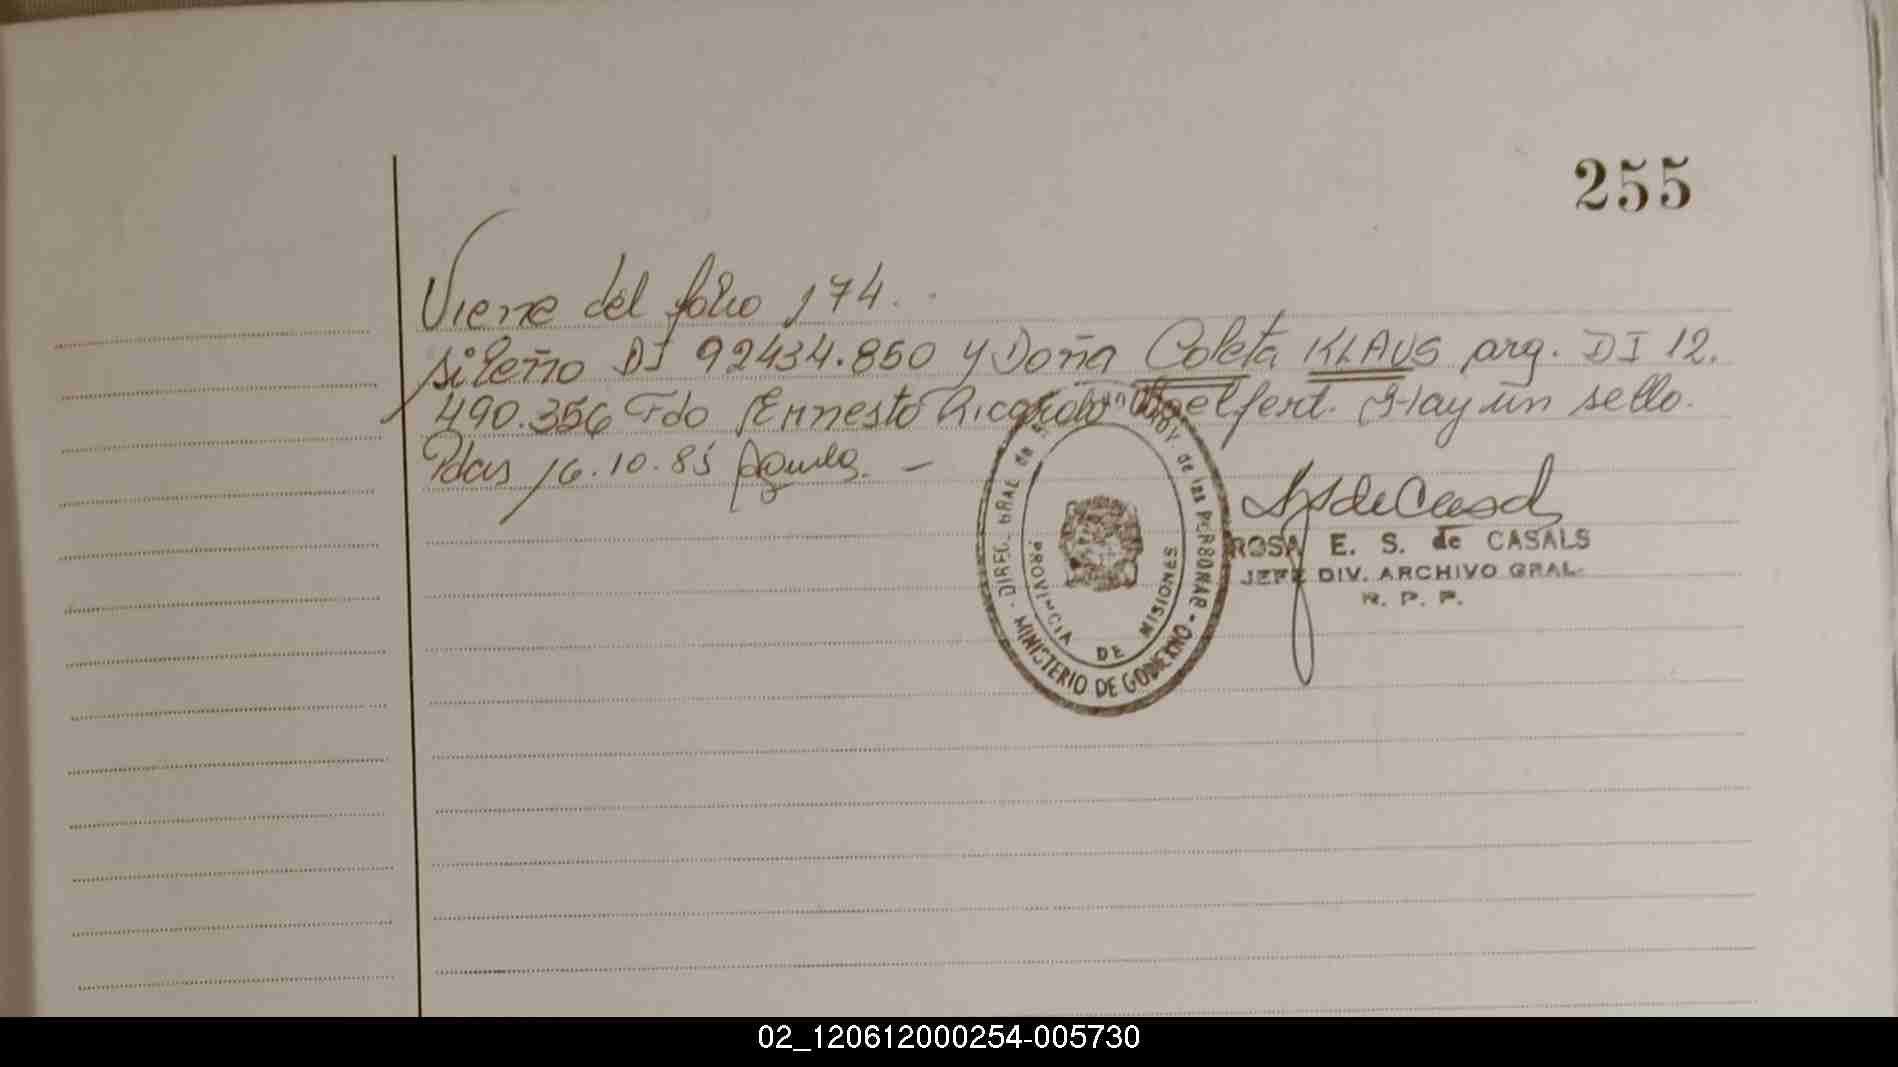 255
Viene del folio 174.
sileño DI 92434.850 y Doña Coleta KLAUS arg. DI 12.
490.356 Fdo Ernesto Ricardo Hay un sello.
Pdas 16.10.85
ROSA E. S. de CASALS
JEFE DIV. ARCHIVO GRAL.
R. P. P.
DIREC. GRAL de PROV. de las PERSONAS
PROVINCIA DE MISIONES
MINISTERIO DE GOBIERNO
02_120612000254-005730